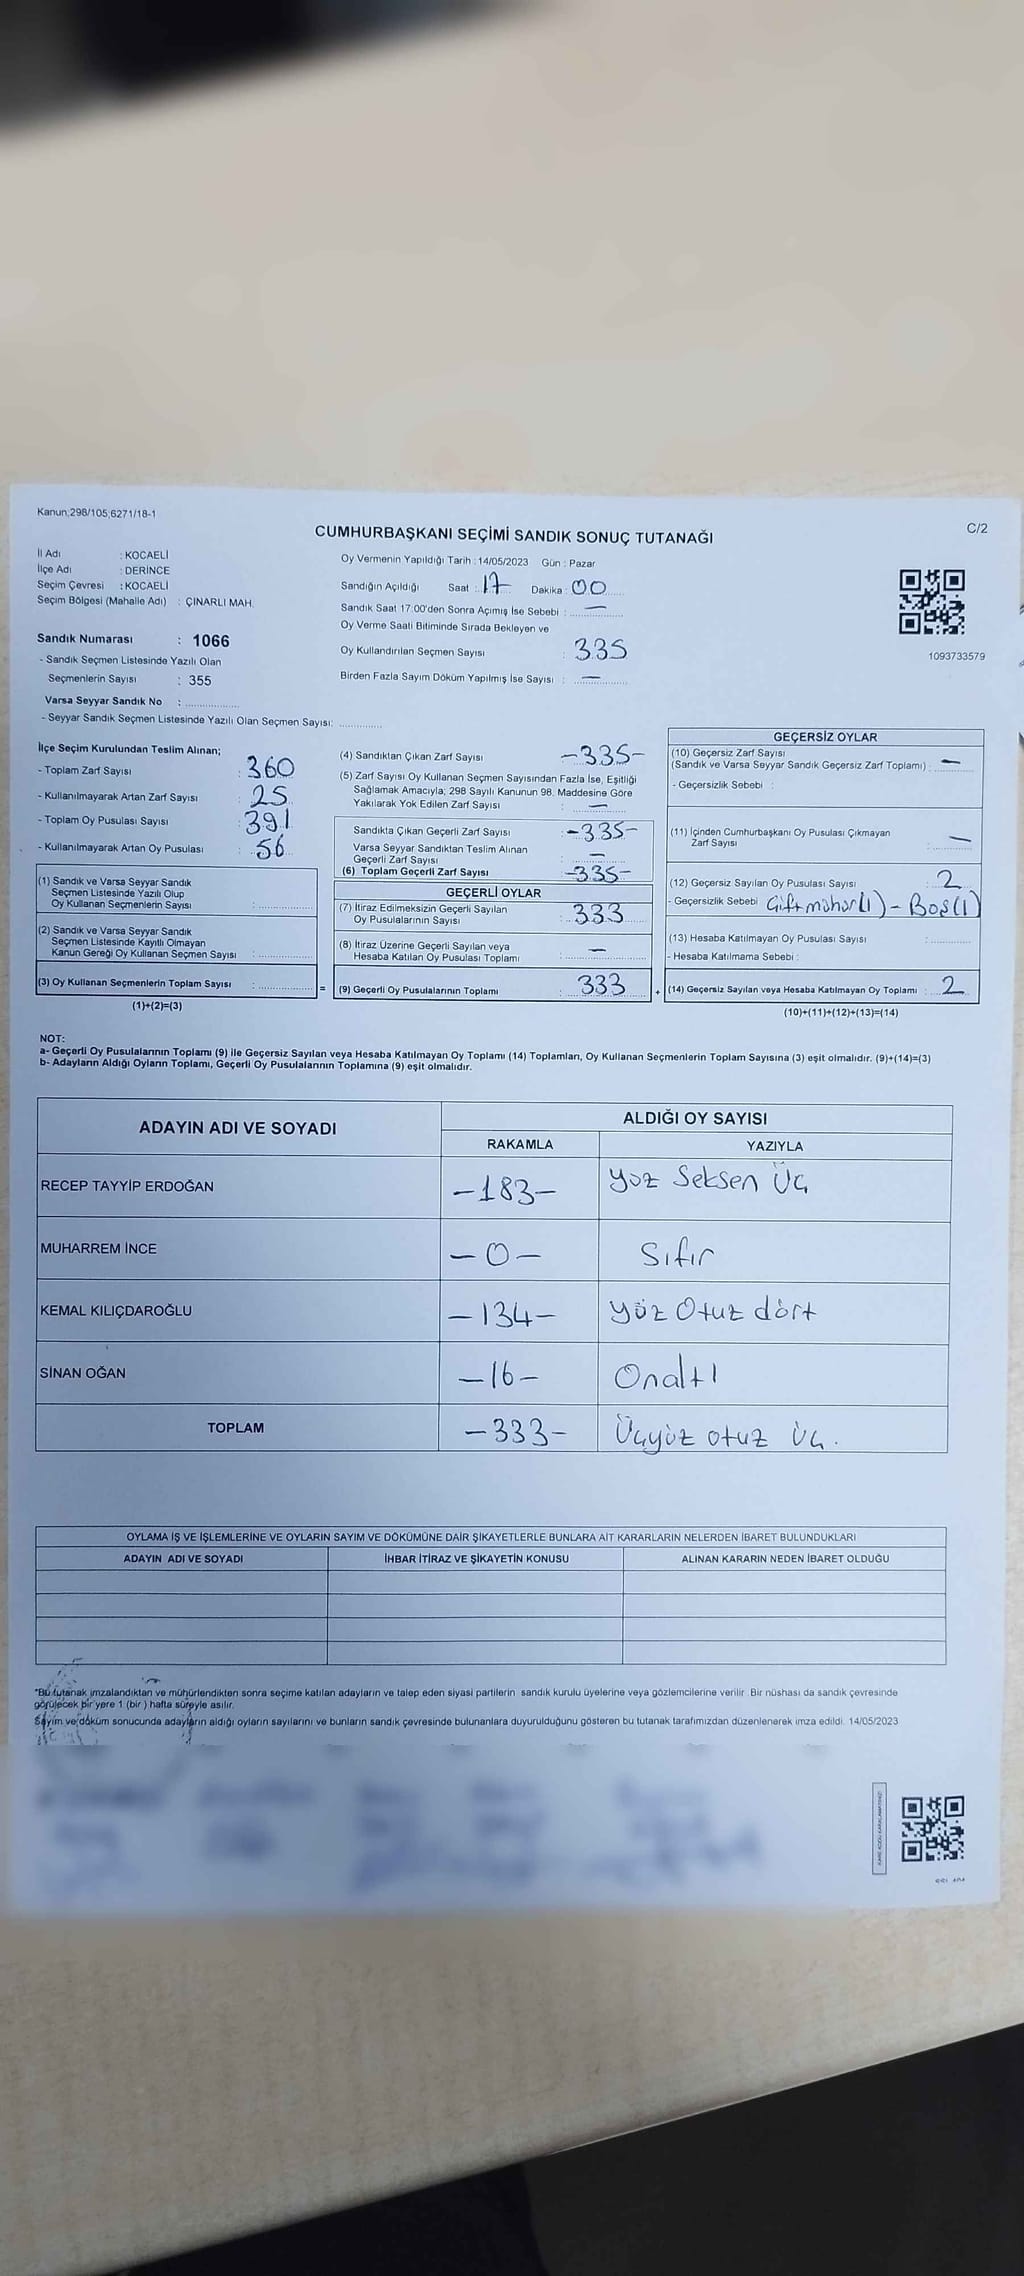 Kanun;298/105;6271/18-1
C/2
CUMHURBAŞKANI SEÇİMİ SANDIK SONUÇ TUTANAĞI
İl Adı : KOCAELİ
İlçe Adı : DERİNCE
Seçim Çevresi : KOCAELİ
Seçim Bölgesi (Mahalle Adı) : ÇINARLI MAH.
Sandık Numarası : 1066
- Sandık Seçmen Listesinde Yazılı Olan
Seçmenlerin Sayısı : 355
Varsa Seyyar Sandık No :
- Seyyar Sandık Seçmen Listesinde Yazılı Olan Seçmen Sayısı:
Oy Vermenin Yapıldığı Tarih : 14/05/2023 Gün : Pazar
Sandığın Açıldığı Saat : 17 Dakika : 00
Sandık Saat 17:00'den Sonra Açımış İse Sebebi : —
Oy Verme Saati Bitiminde Sırada Bekleyen ve
Oy Kullandırılan Seçmen Sayısı : 335
Birden Fazla Sayım Döküm Yapılmış İse Sayısı : —
1093733579
İlçe Seçim Kurulundan Teslim Alınan;
- Toplam Zarf Sayısı : 360
- Kullanılmayarak Artan Zarf Sayısı : 25
- Toplam Oy Pusulası Sayısı : 391
- Kullanılmayarak Artan Oy Pusulası : 56
(1) Sandık ve Varsa Seyyar Sandık
Seçmen Listesinde Yazılı Olup
Oy Kullanan Seçmenlerin Sayısı :
(2) Sandık ve Varsa Seyyar Sandık
Seçmen Listesinde Kayıtlı Olmayan
Kanun Gereği Oy Kullanan Seçmen Sayısı :
(3) Oy Kullanan Seçmenlerin Toplam Sayısı : =
(1)+(2)=(3)
(4) Sandıktan Çıkan Zarf Sayısı : -335-
(5) Zarf Sayısı Oy Kullanan Seçmen Sayısından Fazla İse, Eşitliği
Sağlamak Amacıyla; 298 Sayılı Kanunun 98. Maddesine Göre
Yakılarak Yok Edilen Zarf Sayısı : —
Sandıkta Çıkan Geçerli Zarf Sayısı : -335-
Varsa Seyyar Sandıktan Teslim Alınan
Geçerli Zarf Sayısı : —
(6) Toplam Geçerli Zarf Sayısı : -335-
GEÇERLİ OYLAR
(7) İtiraz Edilmeksizin Geçerli Sayılan
Oy Pusulalarının Sayısı : 333
(8) İtiraz Üzerine Geçerli Sayılan veya
Hesaba Katılan Oy Pusulası Toplamı : —
(9) Geçerli Oy Pusulalarının Toplamı : 333 +
GEÇERSİZ OYLAR
(10) Geçersiz Zarf Sayısı
(Sandık ve Varsa Seyyar Sandık Geçersiz Zarf Toplamı) : —
- Geçersizlik Sebebi :
(11) İçinden Cumhurbaşkanı Oy Pusulası Çıkmayan
Zarf Sayısı : —
(12) Geçersiz Sayılan Oy Pusulası Sayısı : 2
- Geçersizlik Sebebi Çift mühür(1) - Boş(1)
(13) Hesaba Katılmayan Oy Pusulası Sayısı :
- Hesaba Katılmama Sebebi :
(14) Geçersiz Sayılan veya Hesaba Katılmayan Oy Toplamı : 2
(10)+(11)+(12)+(13)=(14)
NOT:
a- Geçerli Oy Pusulalarının Toplamı (9) ile Geçersiz Sayılan veya Hesaba Katılmayan Oy Toplamı (14) Toplamları, Oy Kullanan Seçmenlerin Toplam Sayısına (3) eşit olmalıdır. (9)+(14)=(3)
b- Adayların Aldığı Oyların Toplamı, Geçerli Oy Pusulalarının Toplamına (9) eşit olmalıdır.
ADAYIN ADI VE SOYADI
ALDIĞI OY SAYISI
RAKAMLA YAZIYLA
RECEP TAYYİP ERDOĞAN -183- yüz Seksen Üç
MUHARREM İNCE -0- Sıfır
KEMAL KILIÇDAROĞLU -134- yüz Otuz dört
SİNAN OĞAN -16- Onaltı
TOPLAM -333- Üçyüz otuz üç.
OYLAMA İŞ VE İŞLEMLERİNE VE OYLARIN SAYIM VE DÖKÜMÜNE DAİR ŞİKAYETLERLE BUNLARA AİT KARARLARIN NELERDEN İBARET BULUNDUKLARI
ADAYIN ADI VE SOYADI İHBAR İTİRAZ VE ŞİKAYETİN KONUSU ALINAN KARARIN NEDEN İBARET OLDUĞU
*Bu tutanak imzalandıktan ve mühürlendikten sonra seçime katılan adayların ve talep eden siyasi partilerin sandık kurulu üyelerine veya gözlemcilerine verilir. Bir nüshası da sandık çevresinde
görülecek bir yere 1 (bir) hafta süreyle asılır.
Sayım ve döküm sonucunda adayların aldığı oyların sayılarını ve bunların sandık çevresinde bulunanlara duyurulduğunu gösteren bu tutanak tarafımızdan düzenlenerek imza edildi. 14/05/2023